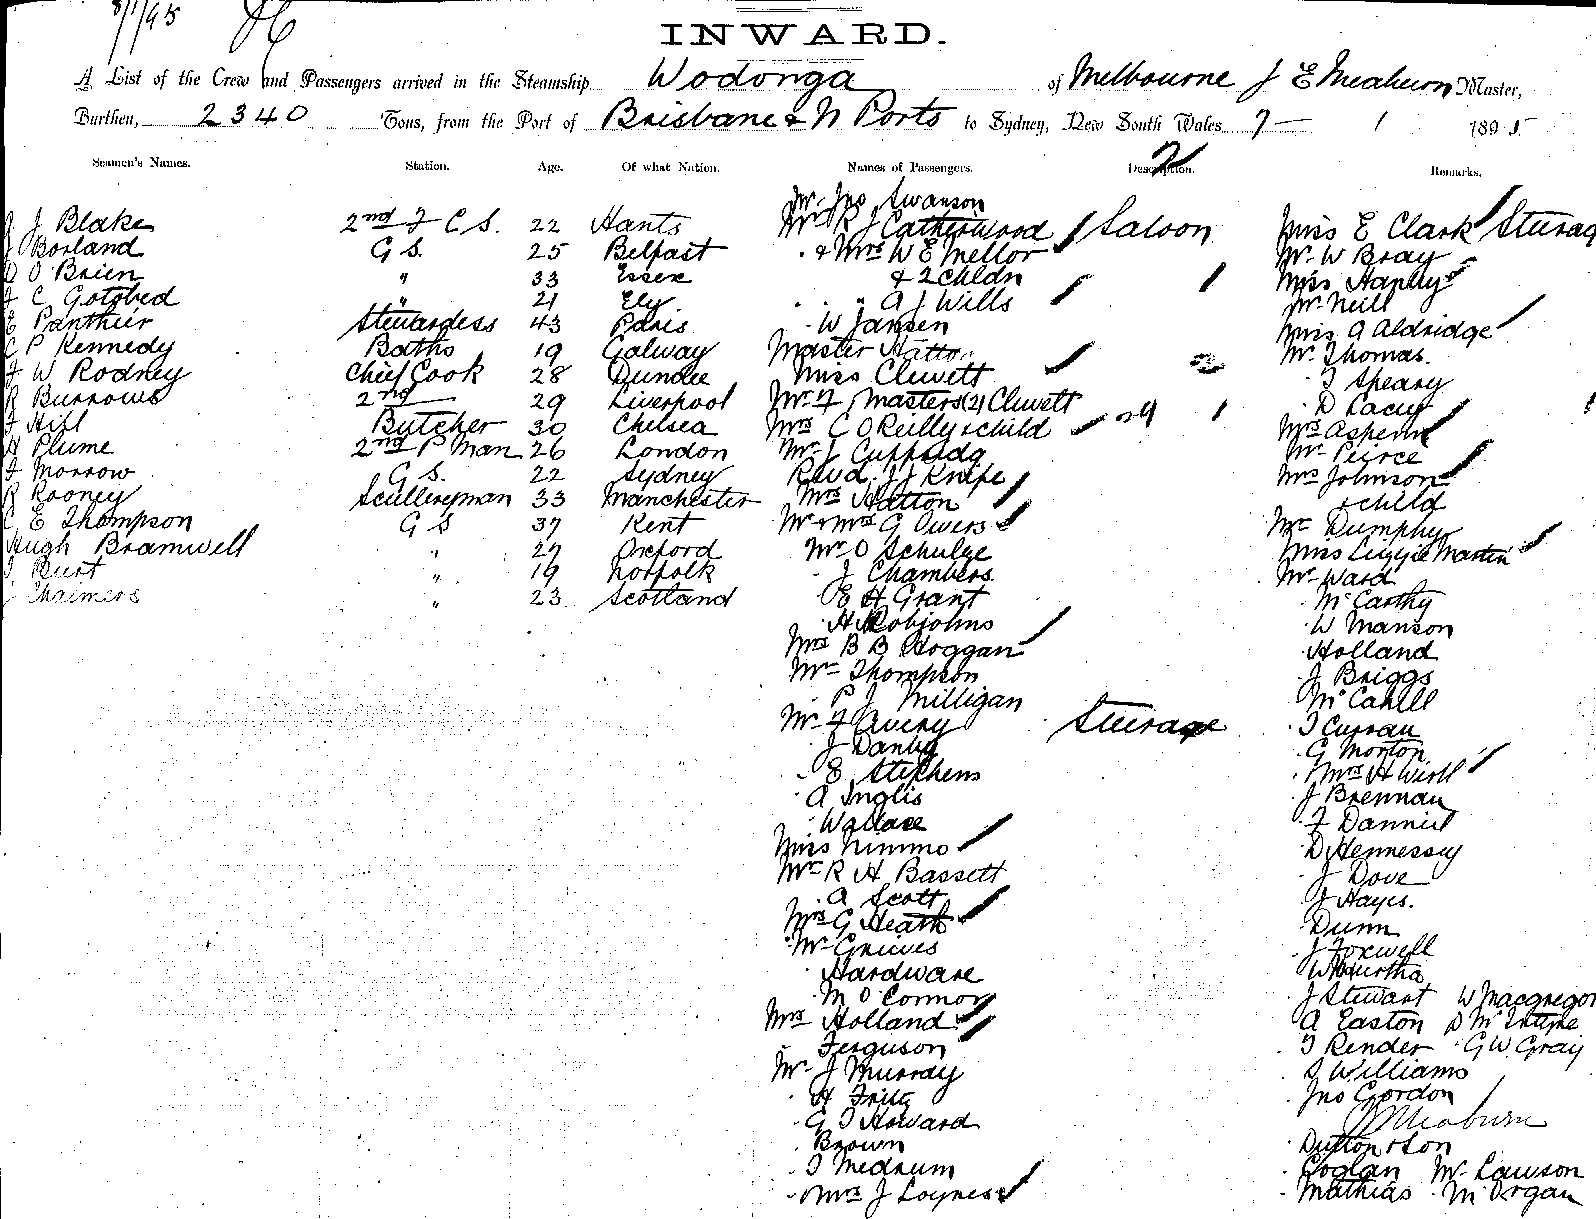 8/1/95
INWARD.
A List of the Crew and Passengers arrived in the Steamship Wodonga of Melbourne J E Meaburn Master,
Burthen, 2340 Tons, from the Port of Brisbane & N Ports to Sydney, New South Wales 7 1 1895
Seamen's Names. Station. Age. Of what Nation. Names of Passengers. Description. Remarks.
Mr Jno Swanson
J Blake 2nd F C S. 22 Hants Mr R J Catherwood Saloon Miss E Clark Steerag
Borland G S. 25 Belfast & Mrs W E Mellor Mr W Bray
D O'Brien " 33 Essex & 2 Childn 1 Miss Hanley
F C Gotobed " 21 Ely " A J Wills Mr Neill
E Panthier Stewardess 43 Paris W Jansen Miss A Aldridge
C P Kennedy Baths 19 Galway Master Hatton Mr Thomas.
F W Rodney Chief Cook 28 Dundee Miss Clewett T Speary
R Burrows 2nd 29 Liverpool Mr F Masters (2) Clewett D Lacey
F Hill Butcher 30 Chelsea Mrs C O'Reilly & child 29 1 Mrs Aspern
H Plume 2nd P Man 26 London Mr J Mr Peirce
F Morrow G S. 22 Sydney Revd J J Knipe Mrs Johnson
R Rooney Sculleryman 33 Manchester Mrs Hatton & child
C E Thompson G S 37 Kent Mr & Mrs G Owers Mr Dumphy
Hugh Bramwell " 27 Oxford Mr O Schulze Miss Lizzie Martin
Burt " 19 Norfolk J Chambers Mr Ward
J Chalmers " 23 Scotland E H Grant McCarthy
H Robjohns W Manson
Mrs B B Hoggan Holland
Mr Thompson J Briggs
P J Milligan McCahill
Mr F Avery Steerage T Curran
J Danby G Morton
E Stephens Mrs H Wirth
A Inglis J Brennan
Wallace F Danniel
Miss Nimmo D Hennessy
Mr R H Bassett J Dove
A Scott J Hayes.
Mrs G Heath Dunn
Mr Grieves J Foxwell
Hardware W
M O'Connor J Stewart W Macgregor
Mrs Holland A Easton D McIntyre
Ferguson T Render G W Gray
Mr J Murray S Williams
H Fritz Jno Gordon
G T Howard J E Meaburn
Brown Dutton & Son
T Medrum Coglan Mr Lawson
Mrs J Loynes Mathias M Organ